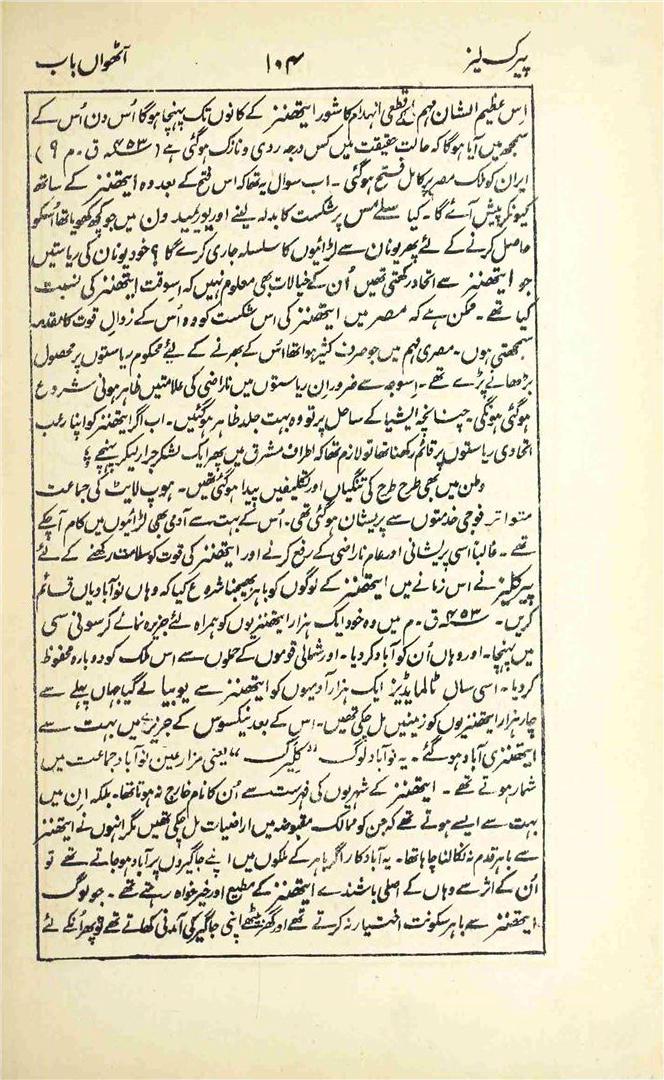 پیرک لیز ۱۰۴ آٹھواں باب
اس عظیم الشان مہم کے قطعی انہدام کا شور ایتھننز کے کانوں تک پہنچا ہوگا اُس دن اُس کے
سمجھ میں آیا ہوگا کہ حالت حقیقت میں کس درجہ ردی و نازک ہوگئی ہے (۴۵۳ ق۔م ۹)
ایران کو ملک مصر پر کامل فتح ہوگئی ۔ اب سوال یہ تھا کہ اس فتح کے بعد وہ ایتھننز کے ساتھ
کیونکر پیش آئے گا۔ کیا سلے مس پر شکست کا بدلہ لینے اور یوریمیڈون میں جو کچھ کھویا تھا اُسکو
حاصل کرنے کے لئے پھر یونان سے لڑائیوں کا سلسلہ جاری کرے گا؟ خود یونان کی ریاستیں
جو ایتھننز سے اتحاد رکھتی تھیں اُن کے خیالات بھی معلوم نہیں کہ اسوقت ایتھننز کی نسبت
کیا تھے ۔ ممکن ہے کہ مصر میں ایتھننز کی اس شکست کو وہ اُس کے زوال قوت کا مقدمہ
سمجھتی ہوں۔ مصری مہم میں جو صرف کثیر ہوا تھا اُس کے بھرنے کے لیے محکوم ریاستوں پر محصول
بڑھانے پڑے تھے ۔ اسوجہ سے ضرور ان ریاستوں میں ناراضی کی علامتیں ظاہر ہونی شروع
ہوگئی ہونگی۔ چنانچہ ایشیا کے ساحل پر تو وہ بہت جلد ظاہر ہوگئیں۔ اب اگر ایتھننز کو اپنا رعب
اتحادی ریاستوں پر قائم رکھنا تھا تو لازم تھا کہ اطراف مشرق میں پھر ایک لشکر جرار لیکر پہنچے ؛
وطن میں بھی طرح طرح کی تنگیاں اور تکلیفیں پیدا ہوگئی تھیں۔ ہوپ لایٹ کی جماعت
متواتر فوجی خدمتوں سے پریشان ہوگئی تھی۔ اُس کے بہت سے آدمی بھی لڑائیوں میں کام آچکے
تھے ۔ غالباً اسی پریشانی اور عام ناراضی کے رفع کرنے اور ایتھننز کی قوت کو سلامت رکھنے کے لئے
پیرکلیز نے اس زمانے میں ایتھننز کے لوگوں کو باہر بھیجنا شروع کیا کہ وہاں نوآبادیاں قائم
کریں۔ ۴۵۳ ق۔م میں وہ خود ایک ہزار ایتھننزیوں کو ہمراہ لئے جزیرہ نمائے کرسونی سی
میں پہنچا۔ اور وہاں اُن کو آباد کردیا۔ اور شمالی قوموں کے حملوں سے اس ملک کو دوبارہ محفوظ
کردیا۔ اسی سال ٹالمایڈیز ایک ہزار آدمیوں کو ایتھننز سے یوبیا لے گیا جہاں پہلے سے
چار ہزار ایتھننزیوں کو زمینیں مل چکی تھیں۔ اس کے بعد نیکسوس کے جزیرے میں بہت سے
ایتھننزی آباد ہوگئے۔ یہ نوآباد لوگ "کلیرک" یعنی مزارعین نوآباد جماعت میں
شمار ہوتے تھے ۔ ایتھننز کے شہریوں کی فہرست سے اُن کا نام خارج نہ ہوتا تھا۔ بلکہ ان میں
بہت سے ایسے ہوتے تھے کہ جن کو ممالک مقبوضہ میں اراضیات مل چکی تھیں مگر انہوں نے ایتھننز
سے باہر قدم نہ نکالنا چاہا تھا۔ یہ آبادکار اگر باہر کے ملکوں میں اپنے جاگیروں پر آباد ہوجاتے تھے تو
اُن کے اثر سے وہاں کے اصلی باشندے ایتھننز کے مطیع اور خیرخواہ رہتے تھے ۔ جو لوگ
ایتھننز سے باہر سکونت اختیار نہ کرتے تھے اور گھر بیٹھے اپنی جاگیر کی آمدنی کھاتے تھے تو پھر اُنکے لئے